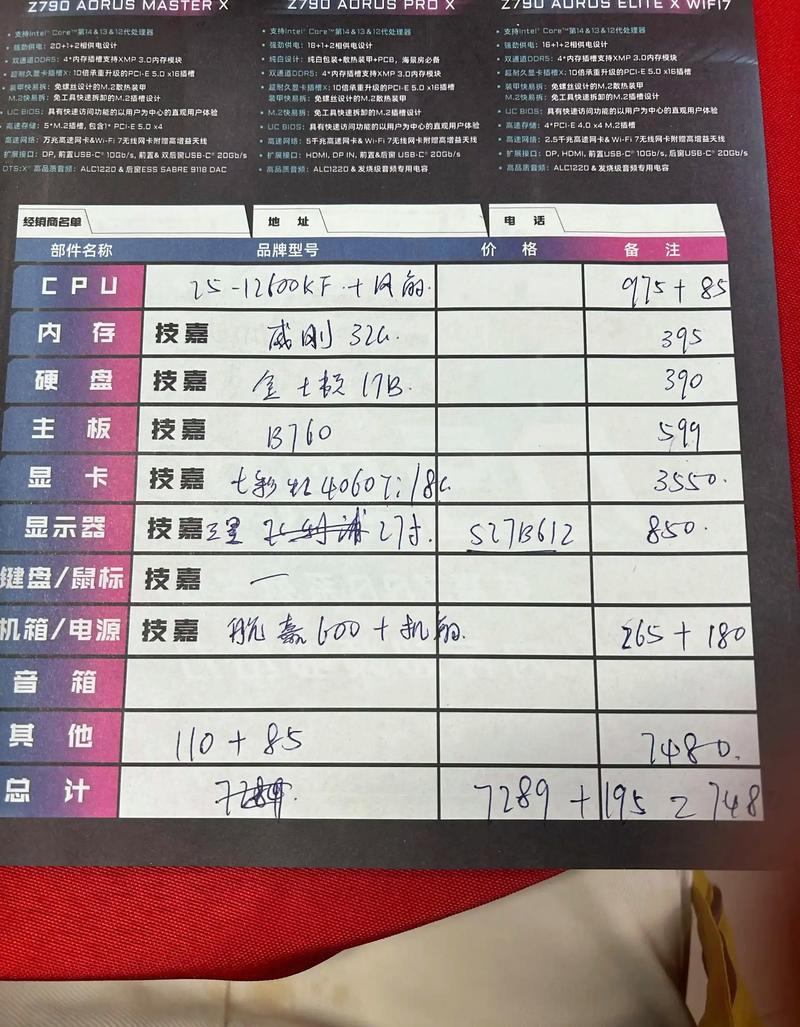 Z790 AORUS MASTER X
支持Intel® Core™第14&13&12代处理器
强劲供电：20+1+2相供电设计
双通道DDR5：4*内存插槽支持XMP 3.0内存模块
超耐久显卡插槽X：10倍承重升级的PCI-E 5.0 x16插槽
装甲快易拆：免螺丝设计的M.2散热装甲
M.2快易拆：免工具快速拆卸的M.2插槽设计
UC BIOS：具有快速访问功能的以用户为中心的直观用户体验
高速存储：5*M.2插槽，包含1* PCI-E 5.0 x4
高速网络：万兆高速网卡&Wi-Fi 7无线网卡附赠高增益天线
扩展接口：DP, 前置USB-C® 10Gb/s，前置& 双后窗USB-C® 20Gb/s
DTS:X® 高品质音频：ALC1220 & 后窗ESS SABRE 9118 DAC
Z790 AORUS PRO X
支持Intel® Core™第14&13&12代处理器
强劲供电：18+1+2相供电设计
纯白设计：纯白包装+散热装甲+PCB，海景房必备
双通道DDR5：4*内存插槽支持XMP 3.0内存模块
超耐久显卡插槽X：10倍承重升级的PCI-E 5.0 x16插槽
装甲快易拆：免螺丝设计的M.2散热装甲
M.2快易拆：免工具快速拆卸的M.2插槽设计
UC BIOS：具有快速访问功能的以用户为中心的直观用户体验
高速网络：5千兆高速网卡&Wi-Fi 7无线网卡附赠高增益天线
扩展接口：HDMI, DP IN, 前置&后窗 USB-C® 20Gb/s
高品质音频：ALC1220 & 发烧级音频专用电容
Z790 AORUS ELITE X WIFI7
支持Intel® Core™第14&13&12代处理器
强劲供电：16+1+2相供电设计
双通道DDR5：4*内存插槽支持XMP 3.0内存模块
超耐久显卡插槽X：10倍承重升级的PCI-E 5.0 x16插槽
装甲快易拆：免螺丝设计的M.2散热装甲
M.2快易拆：免工具快速拆卸的M.2插槽设计
UC BIOS：具有快速访问功能的以用户为中心的直观用户体验
高速存储：4*PCI-E 4.0 x4 M.2插槽
高速网络：2.5千兆高速网卡&Wi-Fi 7无线网卡附赠高增益天线
扩展接口：DP, HDMI, 前置USB-C® 10Gb/s, 后窗USB-C® 20Gb/s
高品质音频：ALC1220 & 发烧级音频专用电容
经销商名单 地 址 电 话
部件名称 品牌型号 价 格 备 注
CPU i5-12600KF + 风扇. 975 + 85
内 存 技嘉 威刚 32G. 395
硬 盘 技嘉 金士顿 1TB. 390
主 板 技嘉 B760 599
显 卡 技嘉 七彩虹 4060Ti/8G 3550.
显示器 技嘉 三星 27寸. S27B612 850.
键盘/鼠标 技嘉 一
机箱/电源 技嘉 航嘉 600 + 机箱. 265 + 180
音 箱
其 他 110 + 85 7480.
总 计 7289 + 195 = 748